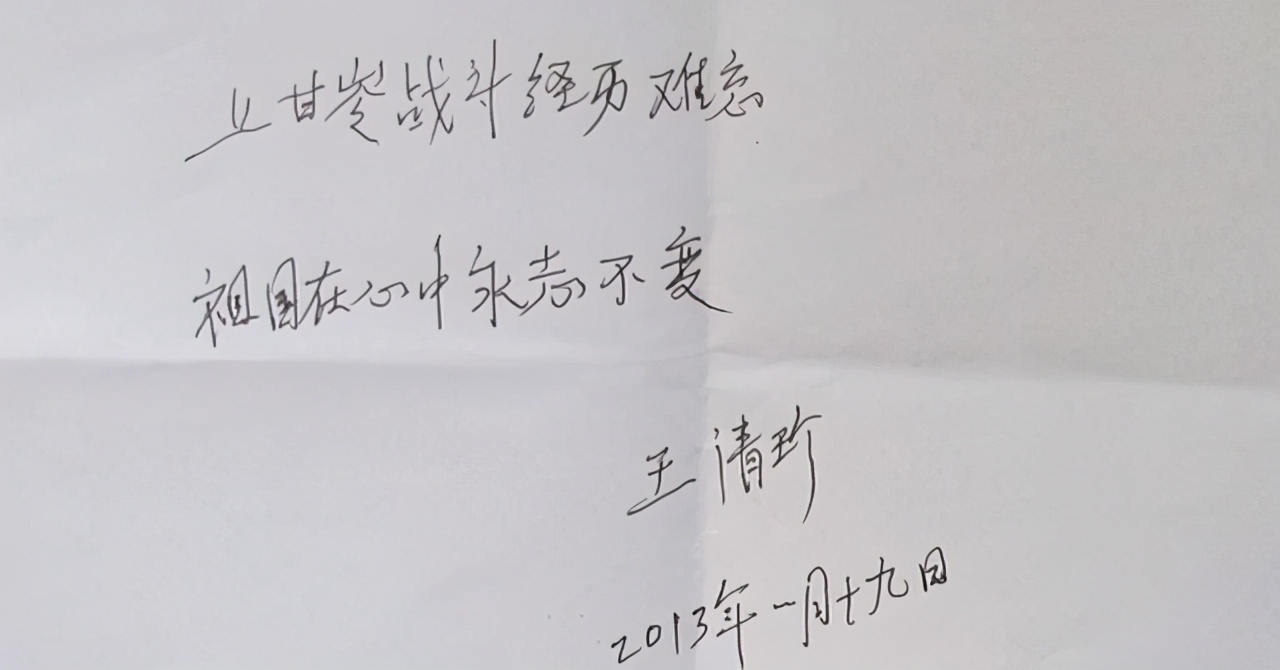 上甘岭战斗经历难忘
祖国在心中永志不变
王清珍
2013年一月十九日